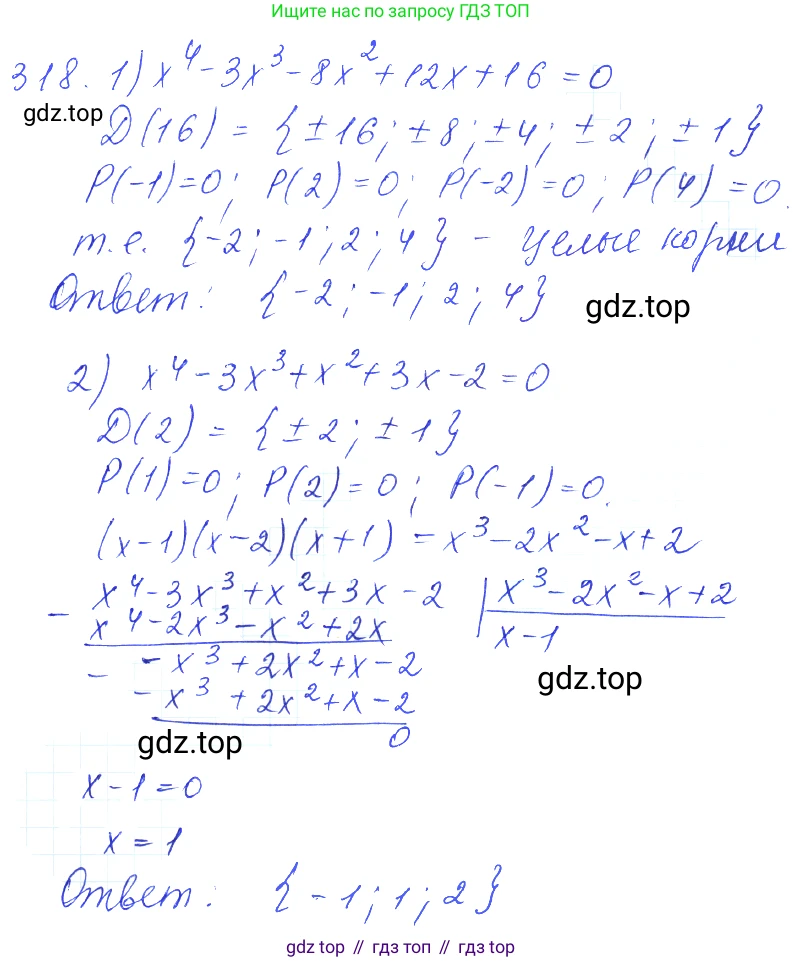 Ищите нас по запросу ГДЗ ТОП
318. 1) x⁴ - 3x³ - 8x² + 12x + 16 = 0
gdz.top
D(16) = {±16; ±8; ±4; ±2; ±1}
P(-1)=0; P(2)=0; P(-2)=0; P(4)=0.
т.е. {-2; -1; 2; 4} - целые корни
Ответ: {-2; -1; 2; 4}
gdz.top
2) x⁴ - 3x³ + x² + 3x - 2 = 0
D(2) = {±2; ±1}
P(1)=0; P(2)=0; P(-1)=0.
(x-1)(x-2)(x+1) = x³ - 2x² - x + 2
- x⁴ - 3x³ + x² + 3x - 2 | x³ - 2x² - x + 2
x⁴ - 2x³ - x² + 2x | x - 1
- - x³ + 2x² + x - 2
- x³ + 2x² + x - 2
gdz.top
gdz.top
0
x - 1 = 0
x = 1
Ответ: {-1; 1; 2}
gdz top // гдз топ // gdz top